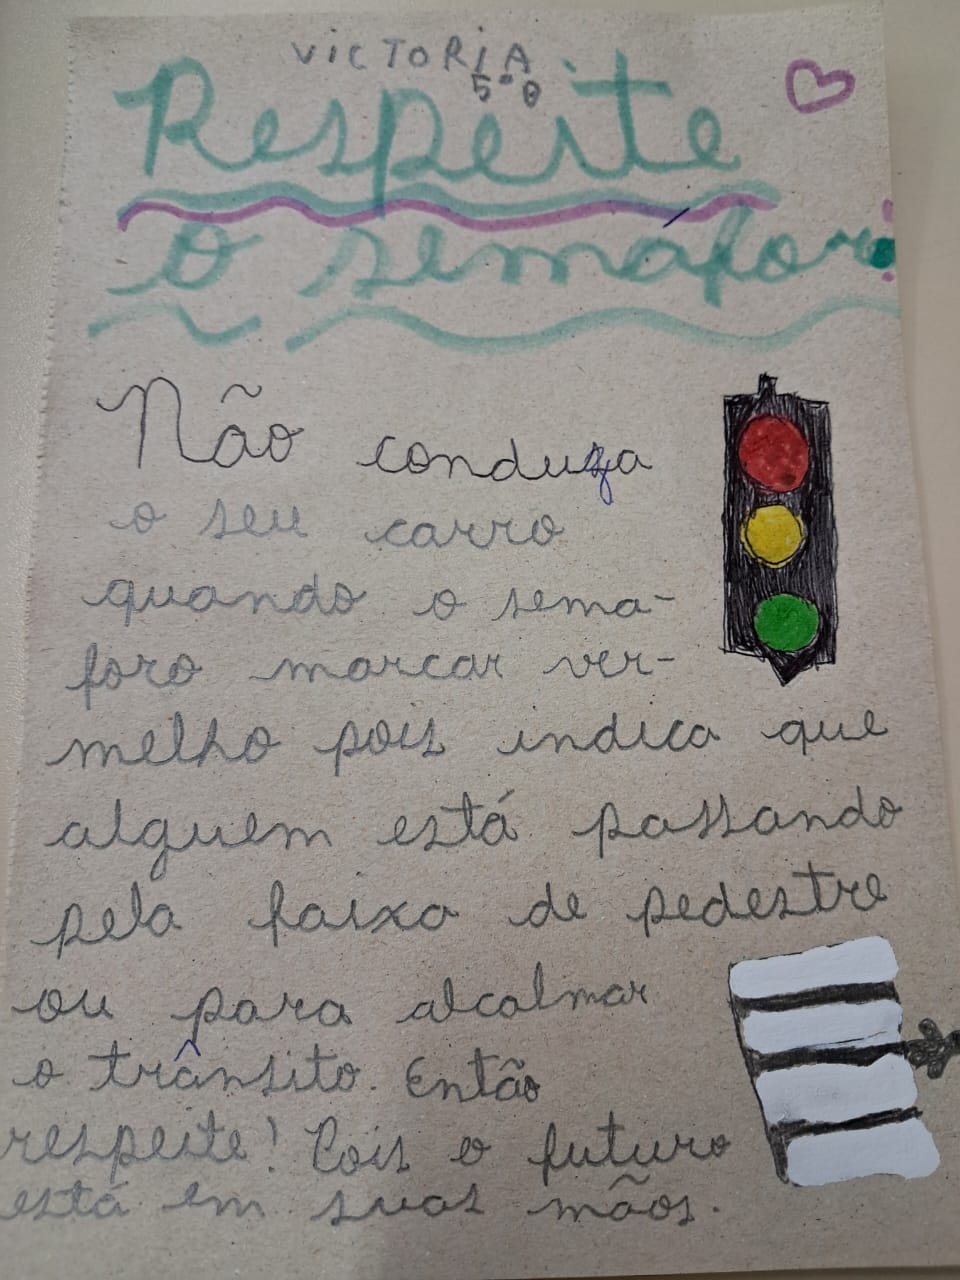 VICTORIA
5º B
Respeite
o semáforo!
Não conduza
o seu carro
quando o sema-
foro marcar ver-
melho pois indica que
alguem está passando
pela faixa de pedestre
ou para alcalmar
o trânsito. Então
respeite! Pois o futuro
está em suas mãos.